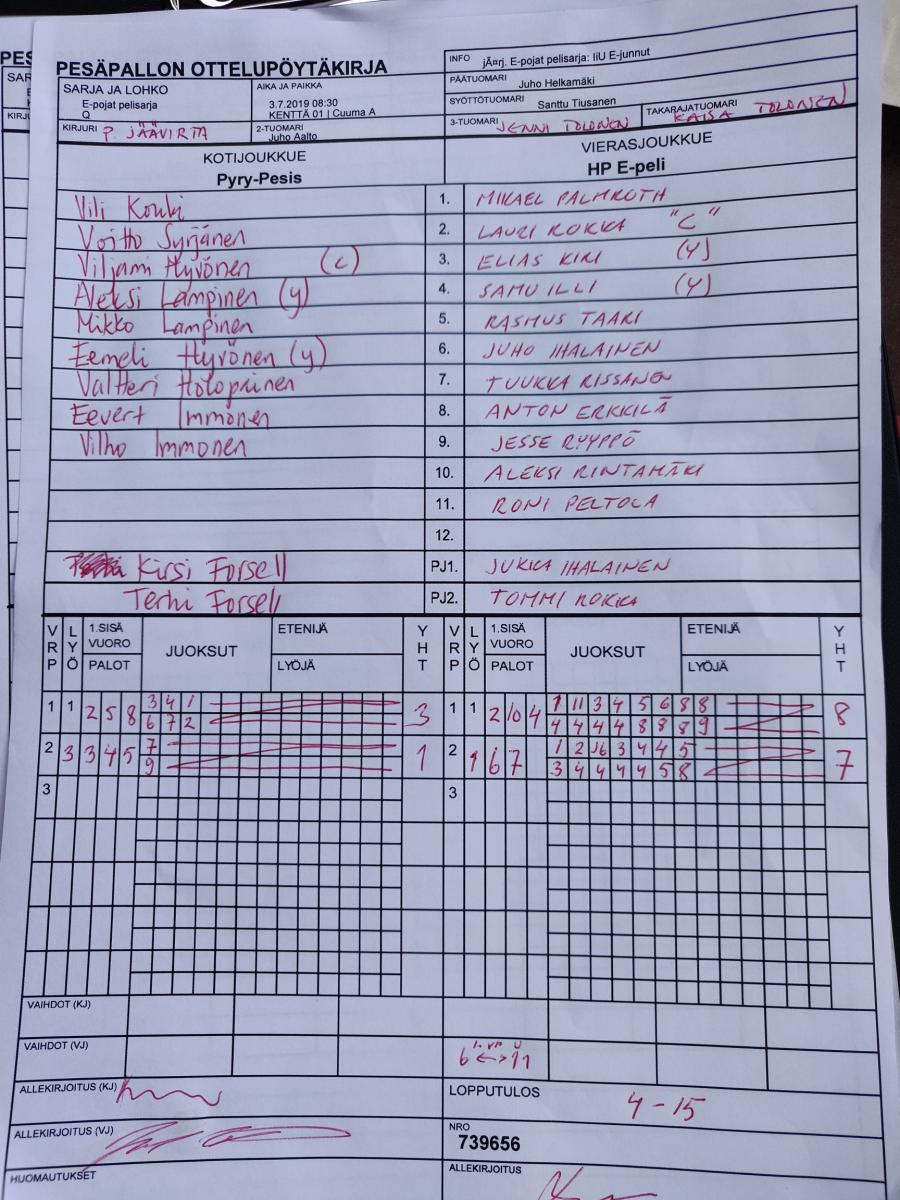 PESÄPALLON OTTELUPÖYTÄKIRJA
SARJA JA LOHKO
E-pojat pelisarja
Q
AIKA JA PAIKKA
3.7.2019 08:30
KENTTÄ 01 | Cuuma A
KIRJURI P. JÄÄVIRTA
2-TUOMARI
Juho Aalto
INFO jÄ¤rj. E-pojat pelisarja: IiU E-junnut
PÄÄTUOMARI Juho Helkamäki
SYÖTTÖTUOMARI Santtu Tiusanen
3-TUOMARI JENNI TOLONEN
TAKARAJATUOMARI KAISA TOLONEN
KOTIJOUKKUE
Pyry-Pesis
VIERASJOUKKUE
HP E-peli
Vili Kouki 1. MIKAEL PALMROTH
Voitto Syrjänen 2. LAURI ROKKA "C"
Viljami Hyvönen (c) 3. ELIAS KIRI (Y)
Aleksi Lampinen (y) 4. SAMU ILLI (Y)
Mikko Lampinen 5. RASMUS TAARI
Eemeli Hyvönen (y) 6. JUHO IHALAINEN
Valtteri Holopainen 7. TUUKKA RISSANEN
Eevert Immonen 8. ANTON ERKKILÄ
Vilho Immonen 9. JESSE RYYPPÖ
10. ALEKSI RINTAMÄKI
11. RONI PELTOLA
12.
Kirsi Forsell PJ1. JUKKA IHALAINEN
Terhi Forsell PJ2. TOMMI ROKKA
VRP LYÖ 1.SISÄ VUORO PALOT JUOKSUT ETENIJÄ LYÖJÄ YHT VRP LYÖ 1.SISÄ VUORO PALOT JUOKSUT ETENIJÄ LYÖJÄ YHT
1 1 2 5 8 3 4 1 3 1 1 2 10 4 1 11 3 4 5 6 8 8 8
6 7 2 4 4 4 4 8 8 8 9
2 3 3 4 5 7 1 2 9 6 7 1 2 3 4 4 5 7
9 3 4 4 4 4 5 8
3 3
VAIHDOT (KJ)
VAIHDOT (VJ) 6 <-> 11
ALLEKIRJOITUS (KJ)
LOPPUTULOS 4 - 15
ALLEKIRJOITUS (VJ)
NRO
739656
HUOMAUTUKSET
ALLEKIRJOITUS